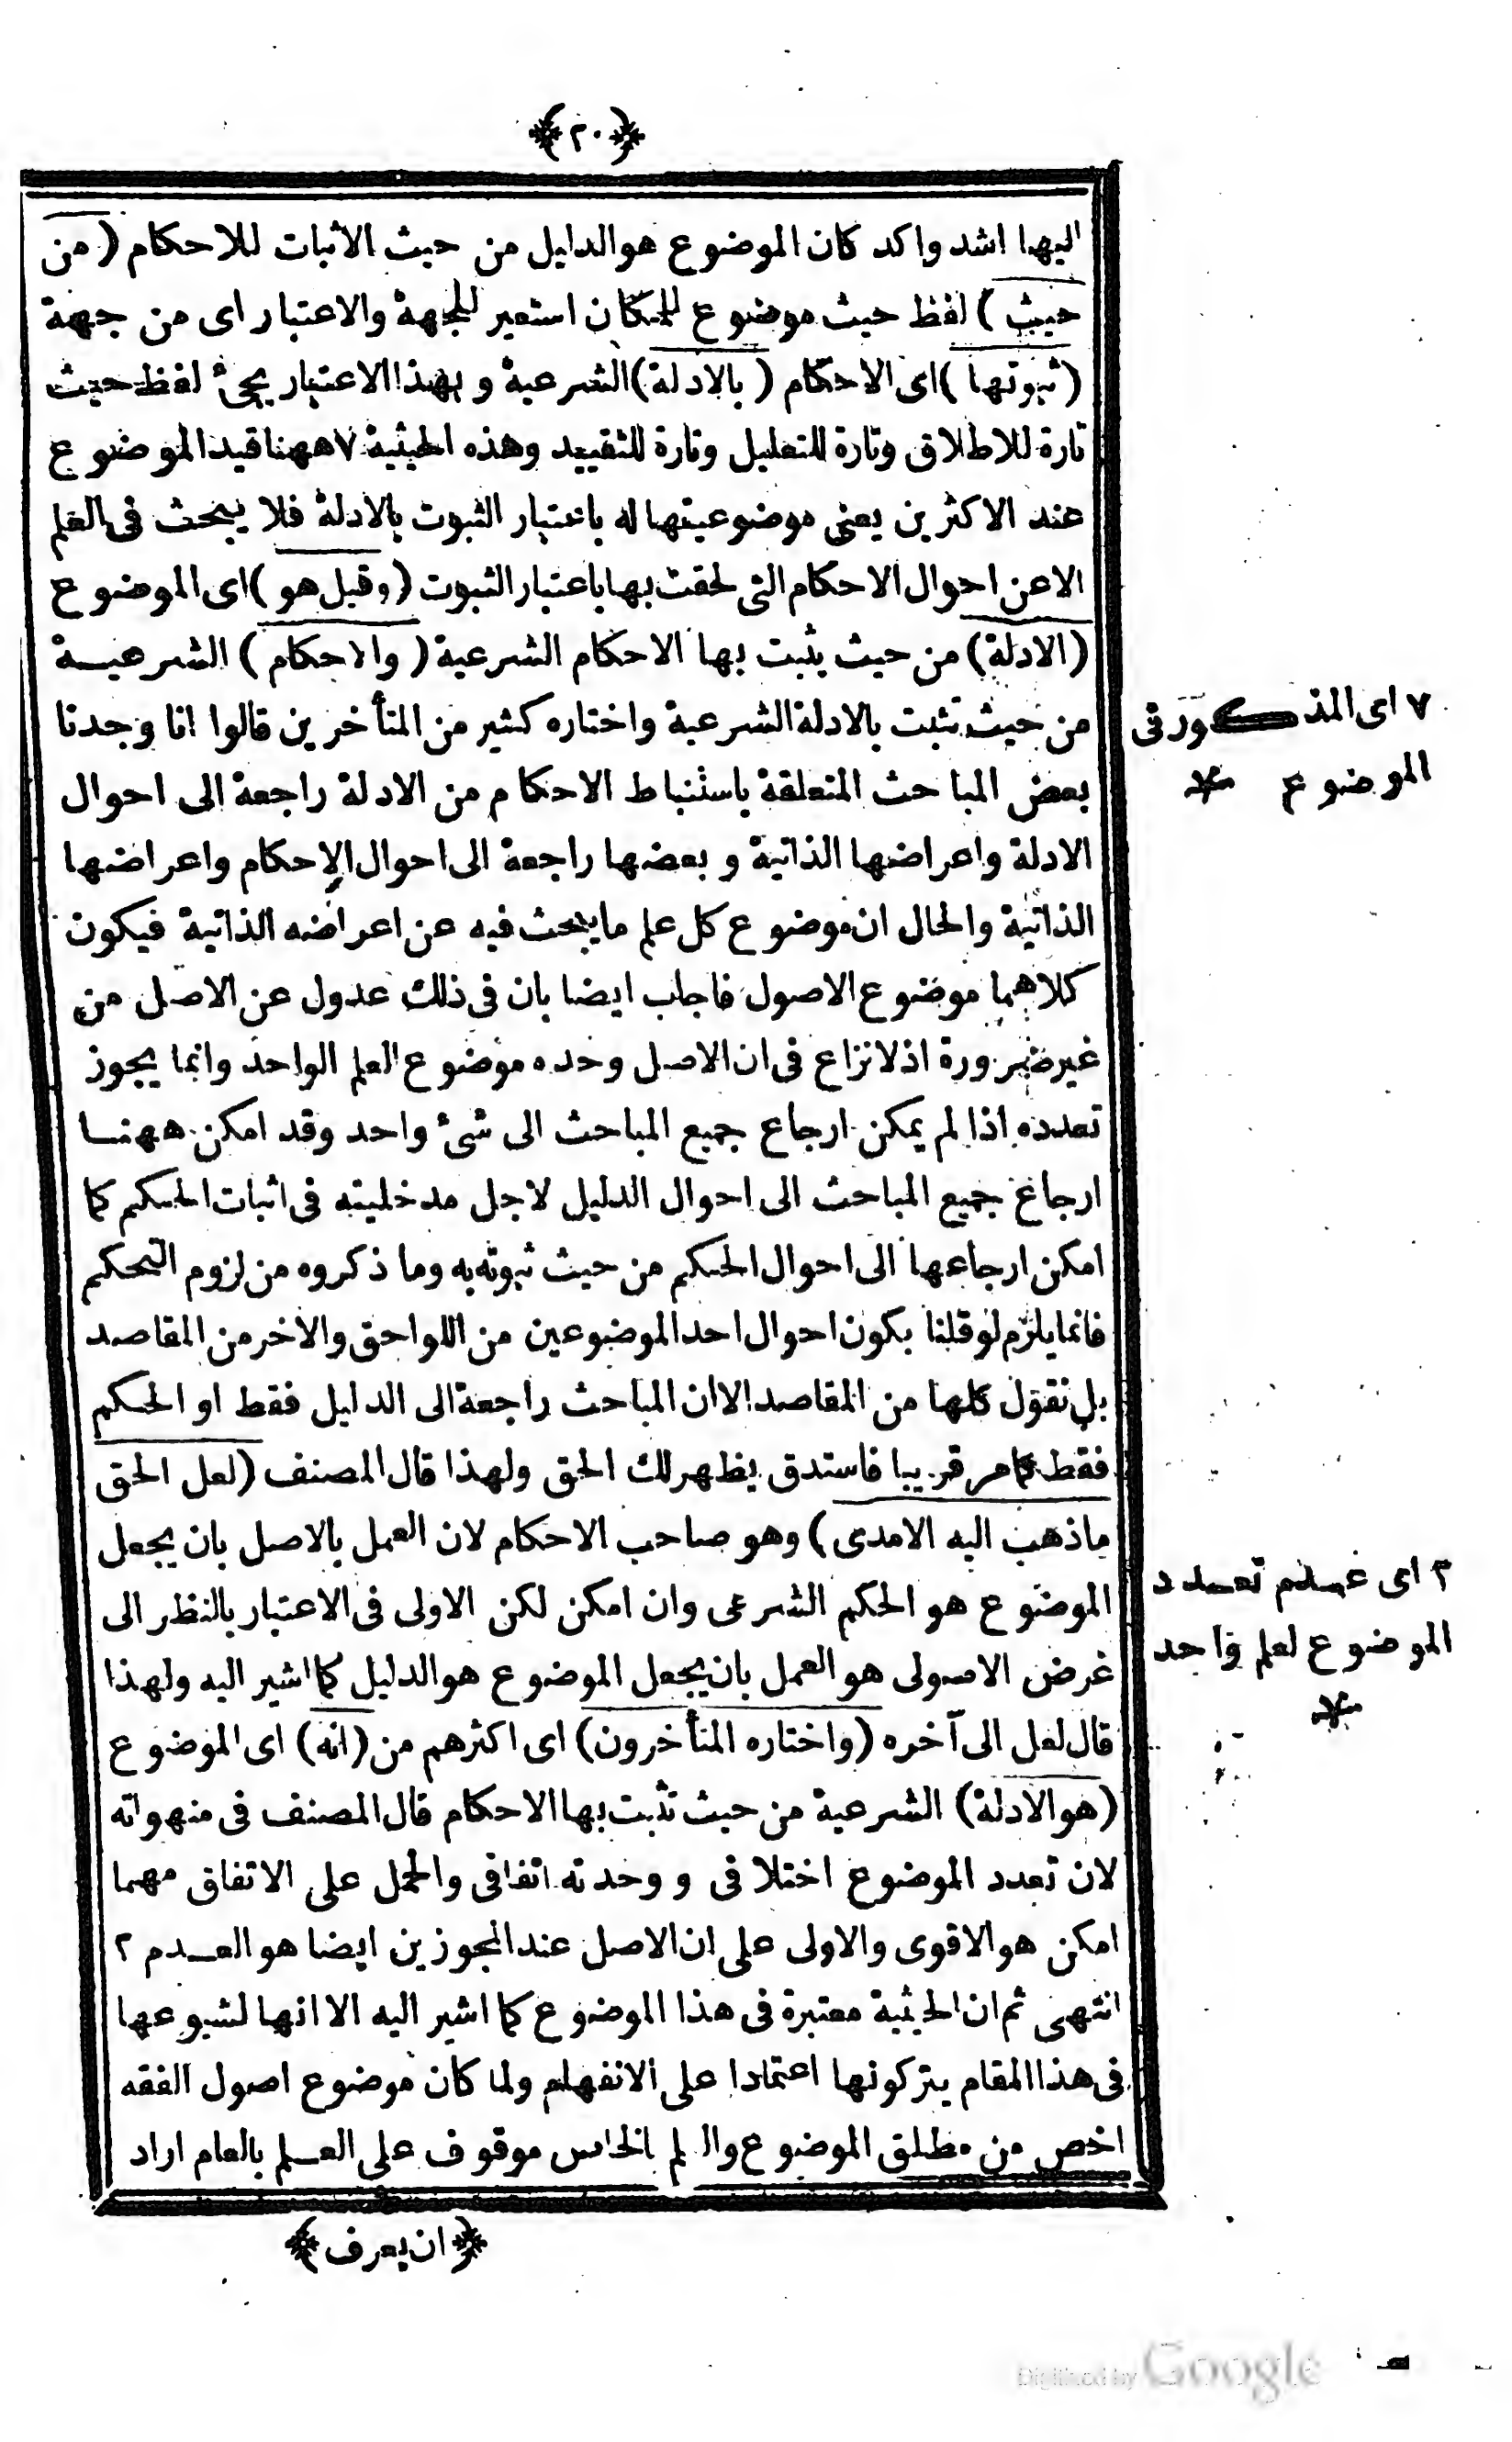 ﴿٢٠﴾
اليها اشد واكد كان الموضوع هو الدليل من حيث الاثبات للاحكام (من
حيث) لفظ حيث موضوع للمكان استعير للجهة والاعتبار اى من جهة
(ثبوتها) اى الاحكام (بالادلة) الشرعية وبهذا الاعتبار يجئ لفظ حيث
تارة للاطلاق وتارة للتعليل وتارة للتقييد وهذه الحيثية ٧ ههنا قيد الموضوع
عند الاكثرين يعنى موضوعيتها له باعتبار الثبوت بالادلة فلا يبحث فى العلم
الا عن احوال الاحكام التى لحقت بها باعتبار الثبوت (وقيل هو) اى الموضوع
(الادلة) من حيث يثبت بها الاحكام الشرعية (والاحكام) الشرعيـة
من حيث تثبت بالادلة الشرعية واختاره كثير من المتأخرين قالوا انا وجدنا
بعض المباحث المتعلقة باستنباط الاحكام من الادلة راجعة الى احوال
الادلة واعراضها الذاتية وبعضها راجعة الى احوال الاحكام واعراضها
الذاتية والحال ان موضوع كل علم ما يبحث فيه عن اعراضه الذاتية فيكون
كلاهما موضوع الاصول فاجاب ايضا بان فى ذلك عدول عن الاصل من
غير ضرورة اذ لا نزاع فى ان الاصل وحده موضوع العلم الواحد وانما يجوز
تعدده اذا لم يمكن ارجاع جميع المباحث الى شئ واحد وقد امكن ههنـا
ارجاع جميع المباحث الى احوال الدليل لاجل مدخليته فى اثبات الحكم كما
امكن ارجاعها الى احوال الحكم من حيث ثبوته به وما ذكروه من لزوم التحكم
فانما يلزم لو قلنا بكون احوال احد الموضوعين من اللواحق والاخر من المقاصد
بل نقول كلها من المقاصد الا ان المباحث راجعة الى الدليل فقط او الحكم
فقط كما مر قريبا فاستدق يظهر لك الحق ولهذا قال المصنف (لعل الحق
ماذهب اليه الامدى) وهو صاحب الاحكام لان العمل بالاصل بان يجعل
الموضوع هو الحكم الشرعى وان امكن لكن الاولى فى الاعتبار بالنظر الى
غرض الاصولى هو العمل بان يجعل الموضوع هو الدليل كما اشير اليه ولهذا
قال لعل الى آخره (واختاره المتأخرون) اى اكثرهم من (انه) اى الموضوع
(هو الادلة) الشرعية من حيث تثبت بها الاحكام قال المصنف فى منهواته
لان تعدد الموضوع اختلافى ووحدته اتفاقى والحمل على الاتفاق مهما
امكن هو الاقوى والاولى على ان الاصل عند المجوزين ايضا هو العـدم ٢
انتهى ثم ان الحيثية معتبرة فى هذا الموضوع كما اشير اليه الا انها لشيوعها
فى هذا المقام يتركونها اعتمادا على الانفهام ولما كان موضوع اصول الفقه
اخص من مطلق الموضوع والعلم بالخاص موقوف على العـلم بالعام اراد
﴿ان يعرف﴾
٧ اى المذكور فى
الموضوع
٢ اى عـدم تعـدد
الموضوع لعلم واحد
Digitized by Google